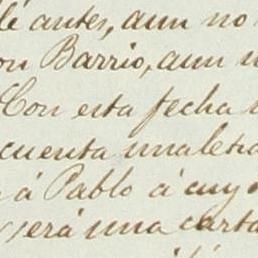 antes, aun no
Barrio, aun
Con esta fecha
cuenta una letra
á Pablo á cuyo
será una carta